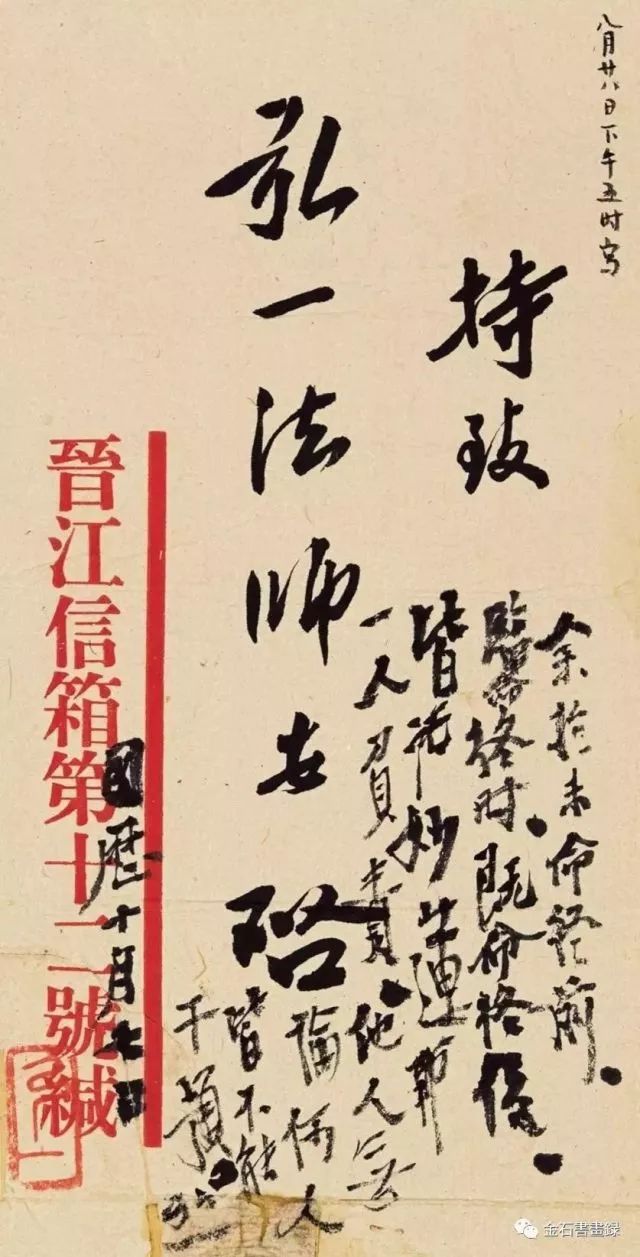 八月廿八日下午五时写
持致
弘一法师安啓
余於未命终前。
臨命终时。既命终後。
皆托妙莲師
一人負責。他人無
論何人
皆不能
干預 弘一
国曆十月七日
晉江信箱第十二號緘
弘一
金石書畫録